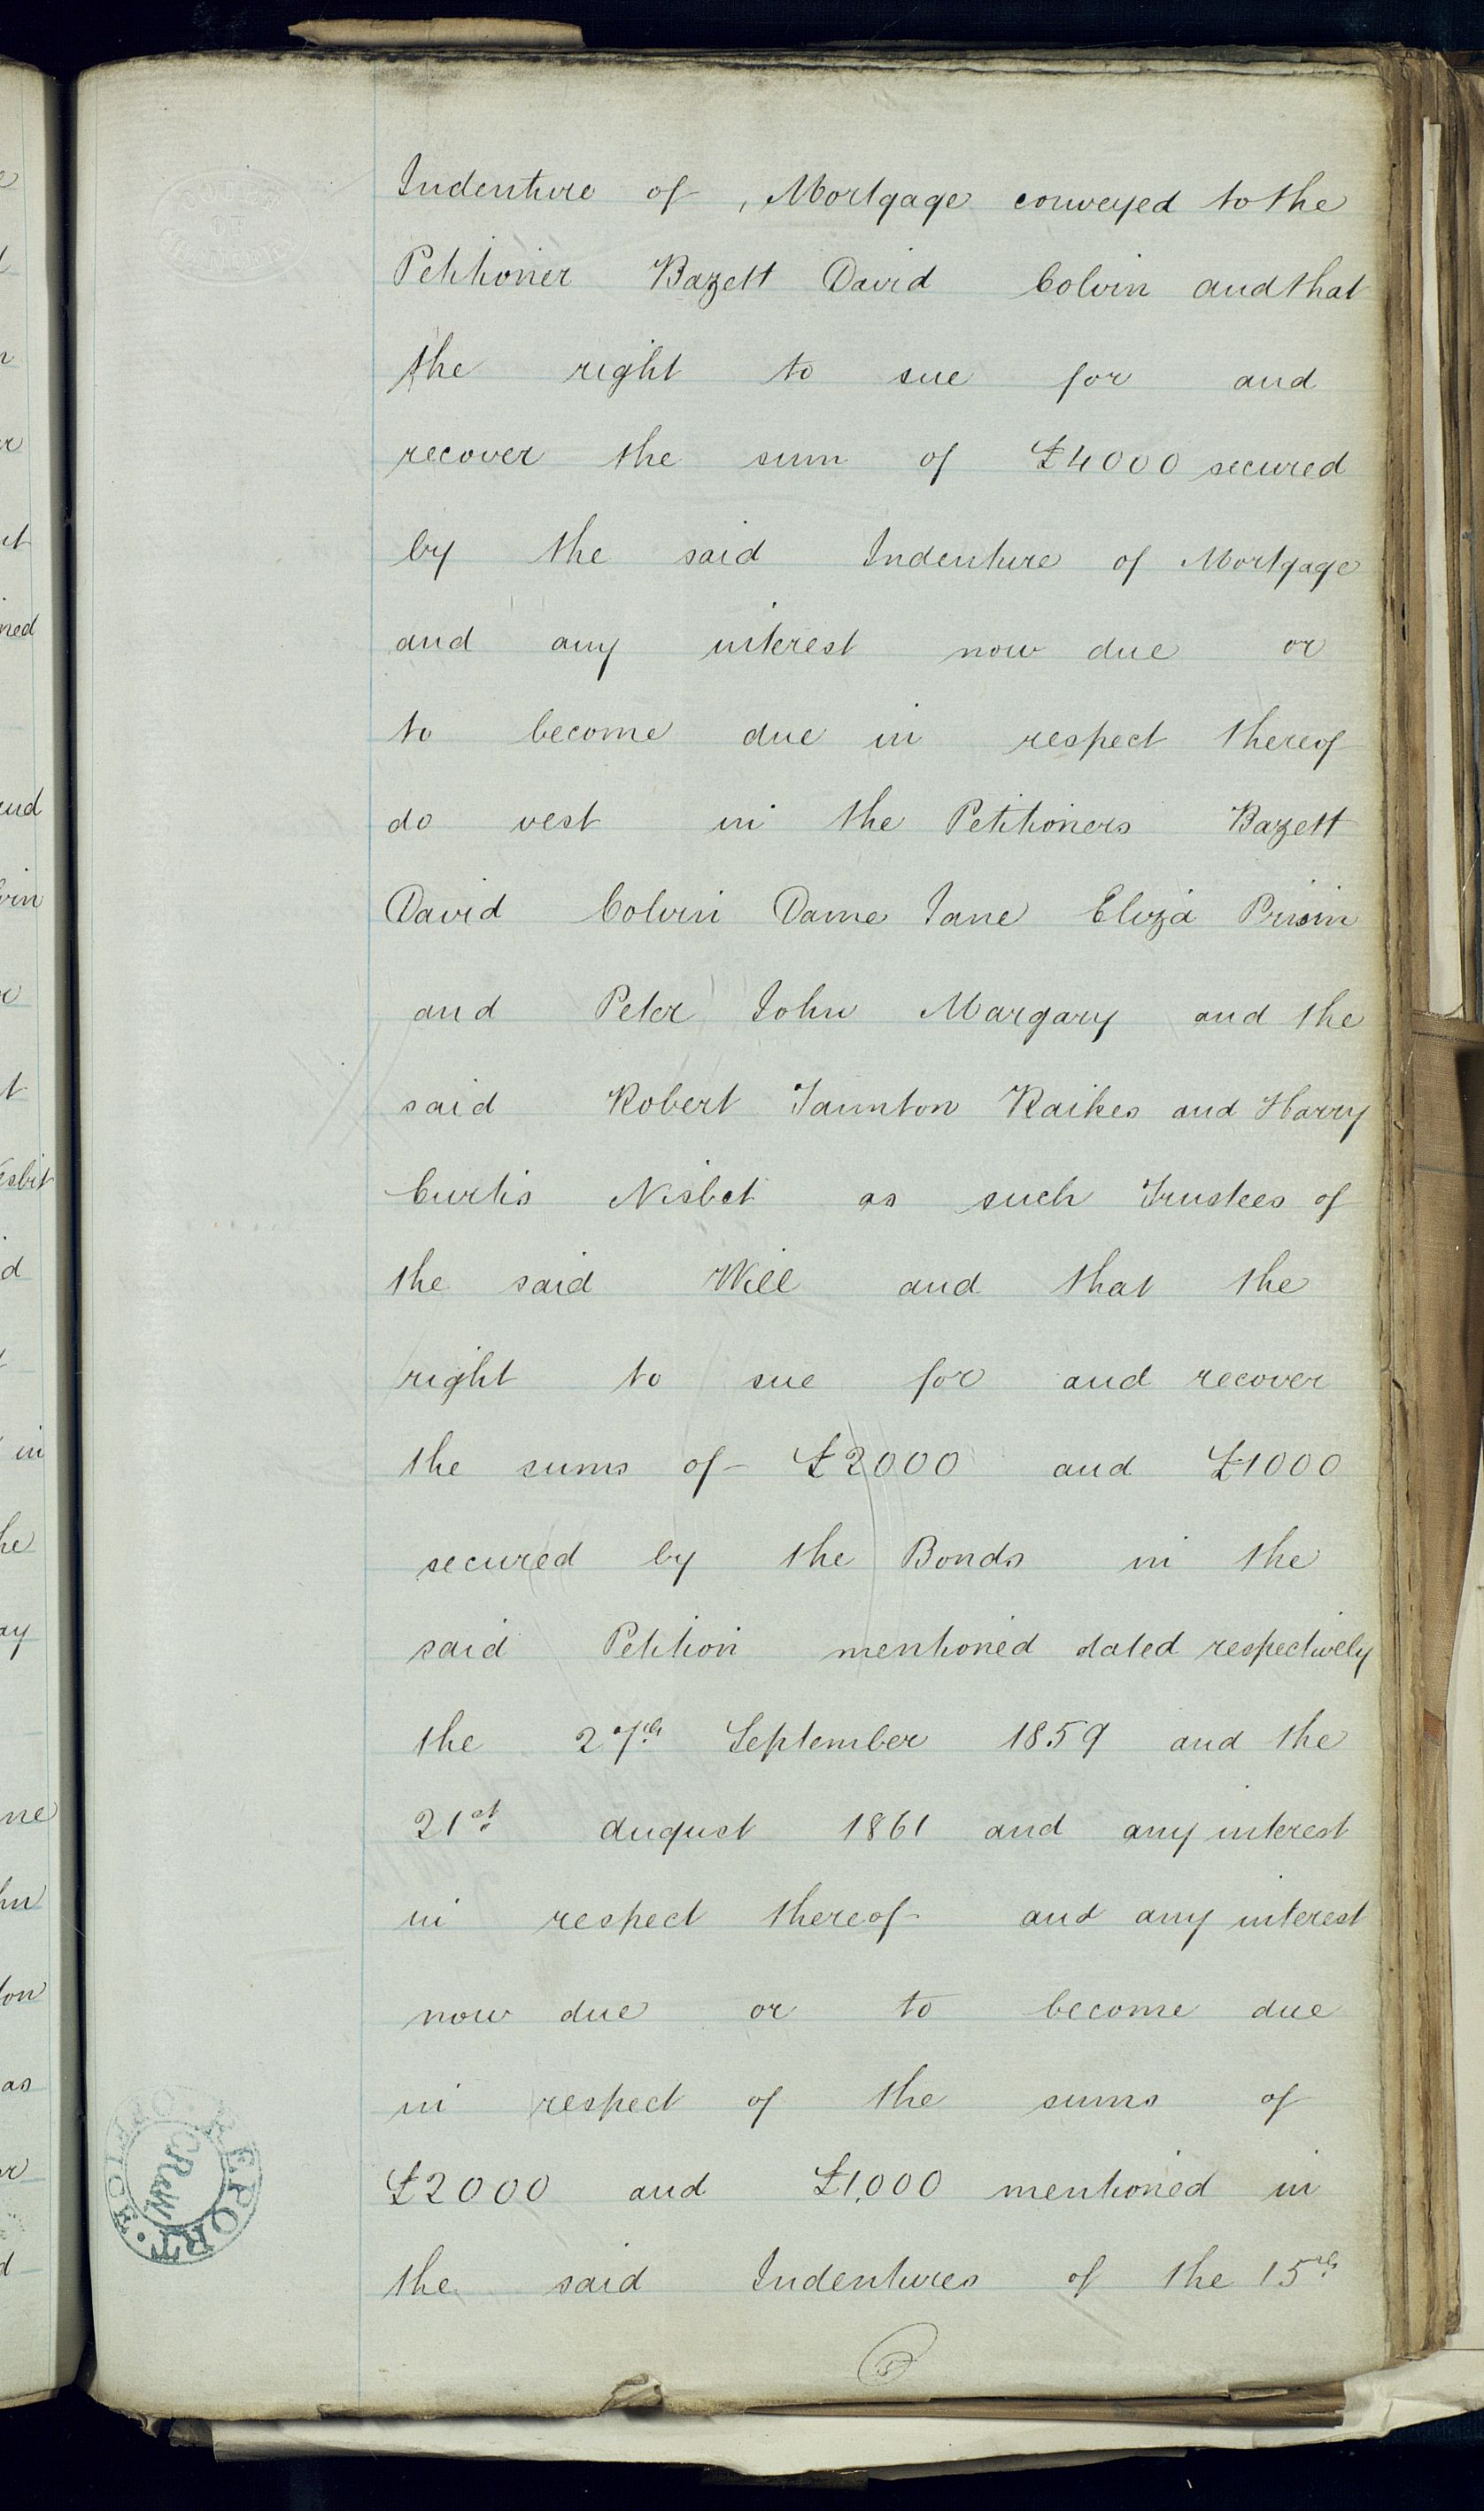 Indenture of , Mortgage conveyed to the
Petitioner Bazett David Colvin and that
the right to sue for and
recover the sum of £4000 secured
by the said Indenture of Mortgage
and any interest now due or
to become due in respect thereof
do vest in the Petitioners Bazett
David Colvin Dame Jane Eliza
and Peter John Margary and the
said Robert Taunton Raikes and Harry
Curtis Nisbet as such Trustees of
the said Will and that the
right to sue for and recover
the sums of £2000 and £1000
secured by the Bonds in the
said Petition mentioned dated respectively
the 27th September 1859 and the
21st August 1861 and any interest
in respect thereof and any interest
now due or to become due
in respect of the sums of
£2000 and £1,000 mentioned in
the said Indentures of the 15th
5
REPORT OFFICE
CR&W